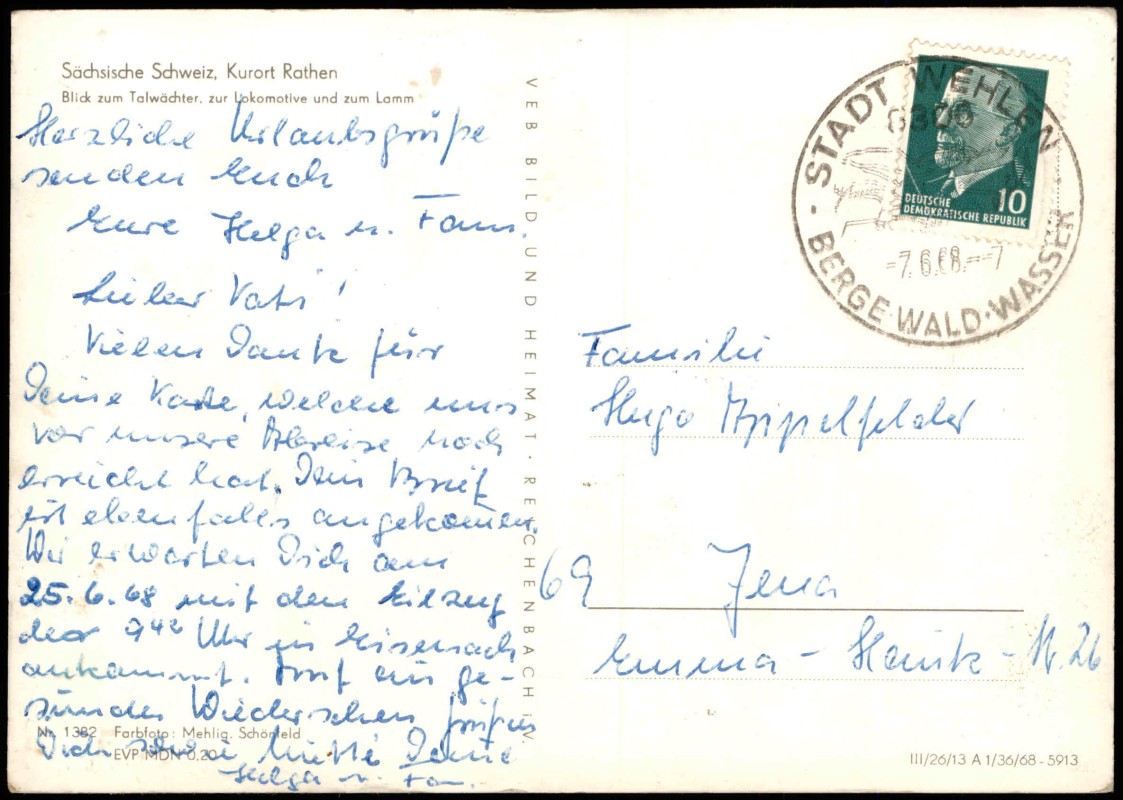 Sächsische Schweiz, Kurort Rathen
Blick zum Talwächter, zur Lokomotive und zum Lamm
Herzliche Urlaubsgrüße
senden Euch
Eure Helga u. Fam.
Lieber Vati!
Vielen Dank für
Deine Karte, welche uns
vor unsere Abreise noch
erreicht hat. Dein Brief
ist ebenfalls angekommen.
Wir erwarten Dich am
25.6.68 mit dem Eilzug
der 9 42 Uhr in Eisenach
ankommt. Auf ein ge-
sundes Wiedersehen grüßen
Dich sowie Mutti Deine
Helga u. Fam.
Nr. 1382 Farbfoto: Mehlig, Schönfeld
EVP MDN 0,20
VEB BILD UND HEIMAT · REICHENBACH I. V.
STADT WEHLEN
8300
-7.6.68.--7
BERGE · WALD · WASSER
10
DEUTSCHE
DEMOKRATISCHE REPUBLIK
Familie
Hugo
69 Jena
Emma-Heintz-Str. 26
III/26/13 A 1/36/68 - 5913